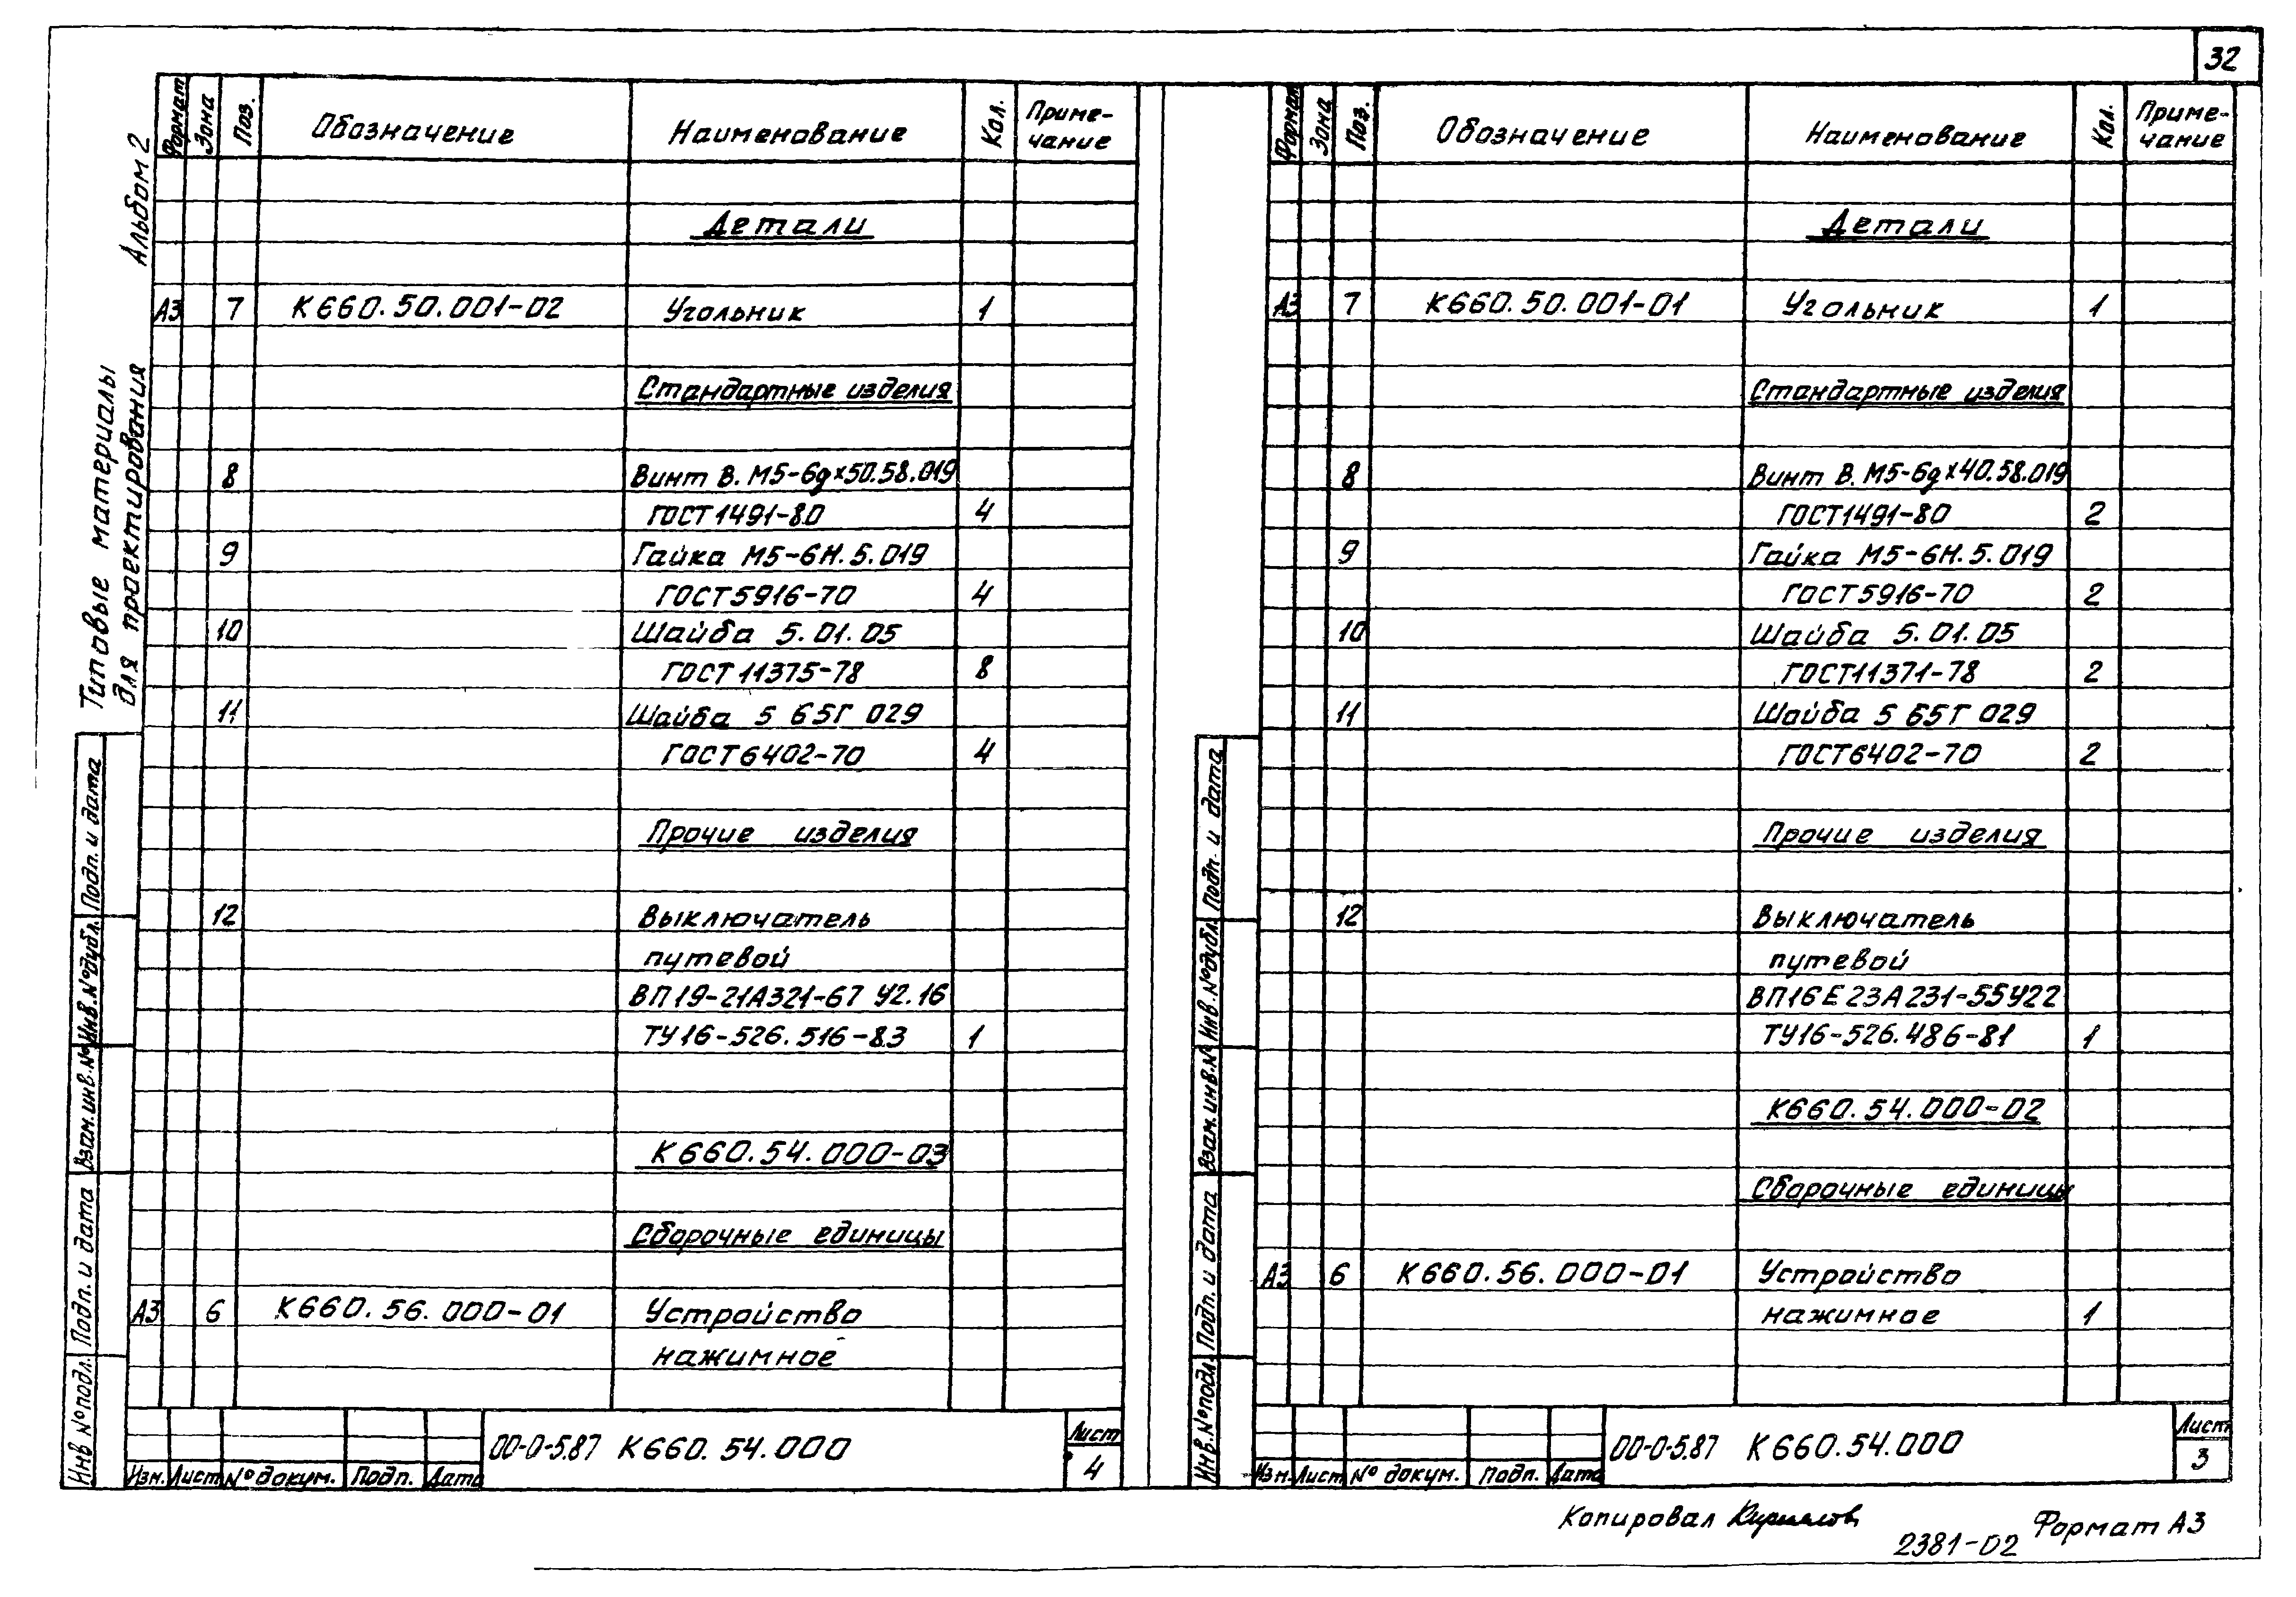 32
Альбом 2
Типовые материалы
для проектирования
Формат Зона Поз. Обозначение Наименование Кол. Приме-
чание
Детали
А3 7 К660.50.001-02 Угольник 1
Стандартные изделия
8 Винт В.М5-6gх50.58.019
ГОСТ 1491-80 4
9 Гайка М5-6Н.5.019
ГОСТ 5916-70 4
10 Шайба 5.01.05
ГОСТ 11375-78 8
11 Шайба 5 65Г 029
ГОСТ 6402-70 4
Прочие изделия
12 Выключатель
путевой
ВП19-21А321-67 У2.16
ТУ16-526.516-83 1
К660.54.000-03
Сборочные единицы
А3 6 К660.56.000-01 Устройство
нажимное
Инв №подл. Подп. и дата Взам.инв.№ Инв.№дубл. Подп. и дата
Изм. Лист № докум. Подп. Дата
00-0-5.87 К660.54.000
Лист
4
Формат Зона Поз. Обозначение Наименование Кол. Приме-
чание
Детали
А3 7 К660.50.001-01 Угольник 1
Стандартные изделия
8 Винт В.М5-6gх40.58.019
ГОСТ 1491-80 2
9 Гайка М5-6Н.5.019
ГОСТ 5916-70 2
10 Шайба 5.01.05
ГОСТ 11371-78 2
11 Шайба 5 65Г 029
ГОСТ 6402-70 2
Прочие изделия
12 Выключатель
путевой
ВП16Е23А231-55У22
ТУ16-526.486-81 1
К660.54.000-02
Сборочные единицы
А3 6 К660.56.000-01 Устройство
нажимное 1
Инв.№подл. Подп. и дата Взам.инв.№ Инв.№дубл. Подп. и дата
Изм. Лист № докум. Подп. Дата
00-0-5.87 К660.54.000
Лист
3
Копировал
2381-02
Формат А3